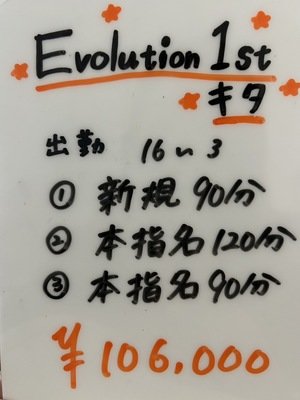 Evolution 1st
キタ
出勤 16~3
① 新規 90分
② 本指名 120分
③ 本指名 90分
¥106,000